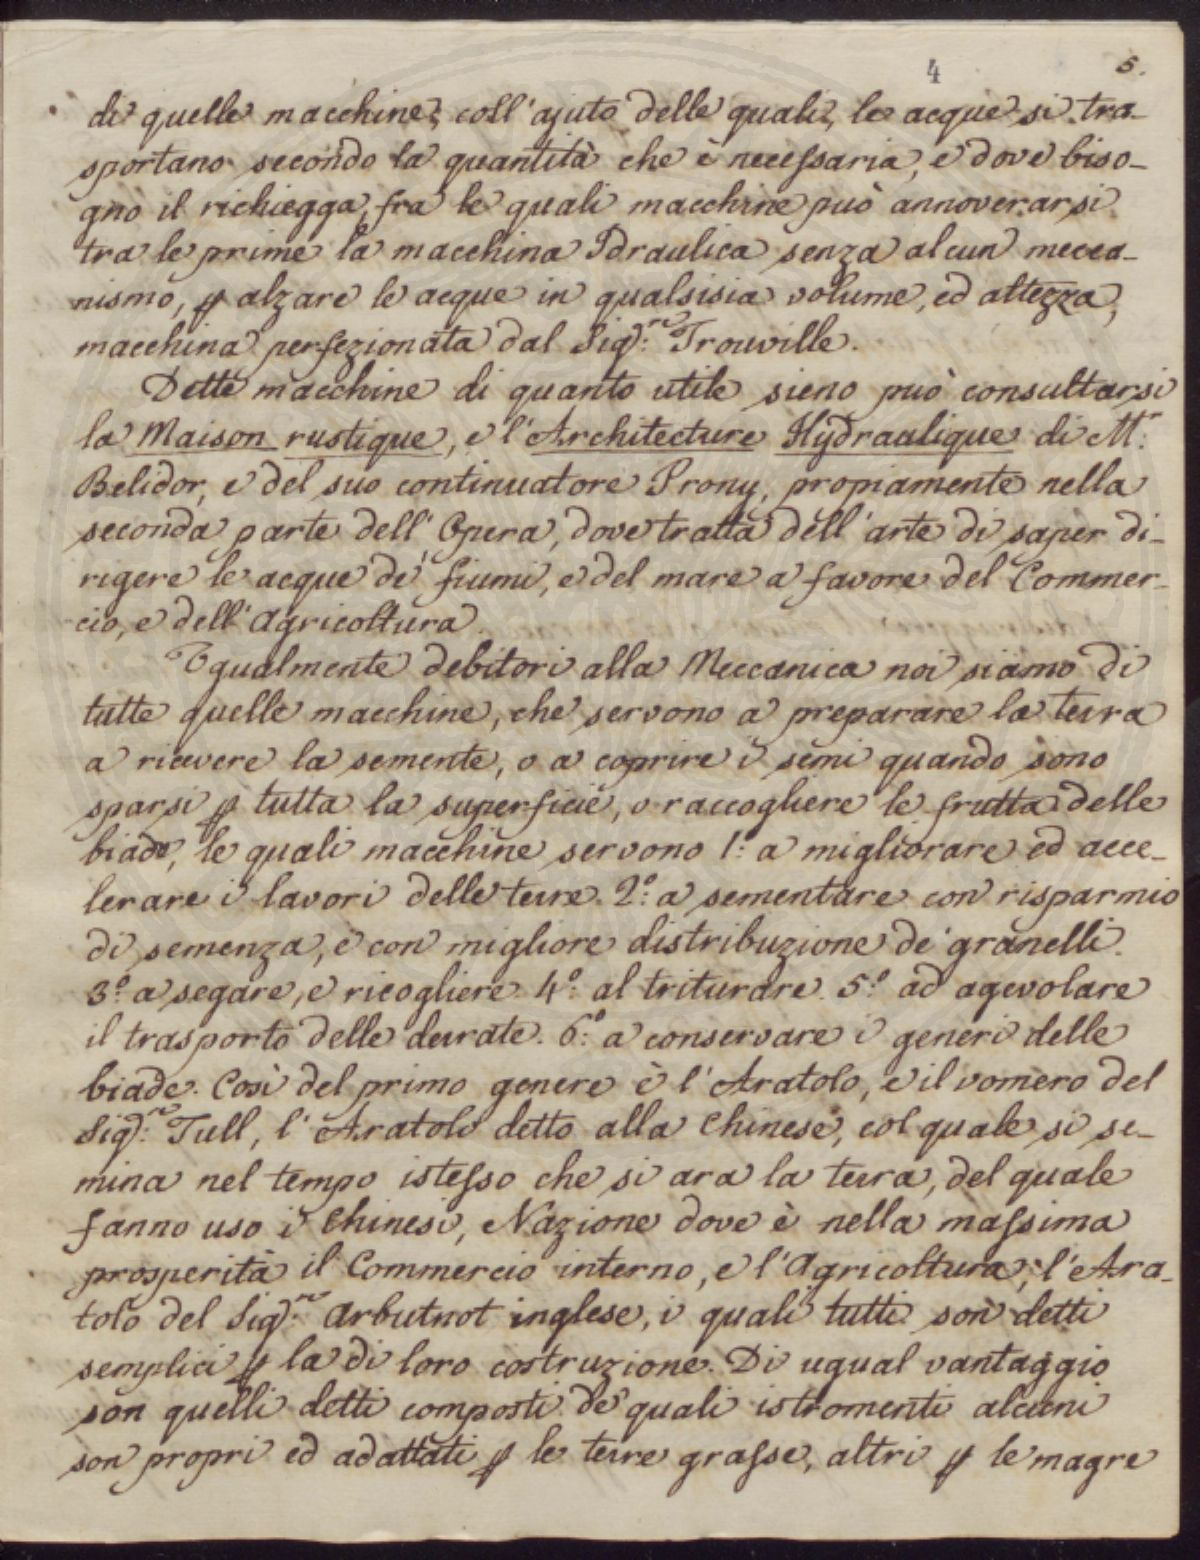 4 5.
di quelle macchine, coll'ajuto delle quali, le acque si tra-
sportano secondo la quantità che è necessaria, e dove biso-
gno il richiegga, fra le quali macchine può annoverarsi
tra le prime la macchina Idraulica senza alcun mecca-
nismo, ꝑ alzare le acque in qualsisia volume, ed altezza,
macchina perfezionata dal Sig:re Trouville.
Dette macchine di quanto utile sieno può consultarsi
la Maison rustique, e l'Architecture Hydraulique di Mr:
Belidor, e del suo continuatore Prony, propiamente nella
seconda parte dell'Opera, dove tratta dell'arte di saper di-
rigere le acque de' fiumi, e del mare a favore del Commer-
cio, e dell'Agricoltura.
Egualmente debitori alla Meccanica noi siamo di
tutte quelle macchine, che servono a preparare la terra
a ricevere la semente, o a coprire i semi quando sono
sparsi ꝑ tutta la superficie, o raccogliere le frutta delle
biade, le quali macchine servono 1:o a migliorare ed acce-
lerare i lavori delle terre. 2:o a sementare con risparmio
di semenza, e con migliore distribuzione de' granelli.
3:o a segare, e ricogliere. 4:o al triturare. 5:o ad agevolare
il trasporto delle derrate. 6:o a conservare i generi delle
biade. Così del primo genere è l'Aratolo, e il vomero del
Sig:re Tull, l'Aratolo detto alla Chinese, col quale si se-
mina nel tempo istesso che si ara la terra, del quale
fanno uso i Chinesi, Nazione dove è nella massima
prosperità il Commercio interno, e l'Agricoltura; l'Ara-
tolo del Sig:re Arbutnot inglese, i quali tutti son detti
semplici ꝑ la di loro costruzione. Di ugual vantaggio
son quelli detti composti de' quali istromenti alcuni
son propri ed adattati ꝑ le terre grasse, altri ꝑ le magre